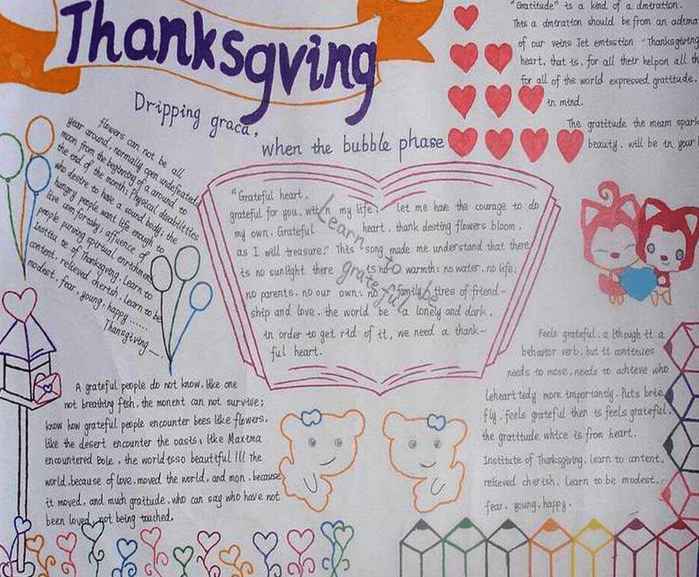 Thanksgving
Dripping graca,
when the bubble phase
"Gratitude" is a kind of a dmtration.
This a dmtration should be from an
of our veins Jet emtsstion "Thanksgiving
heart, that is, for all their helpon all th
for all of the world expressed gratitude,
in mind.
The gratitude the meam spark
beauty. will be in year
flowers can not be all
year around, normally open undefeated
moon from the beginning of a around to
the end of the month; Physical disabilities
who desire to have a sound body; the
hungry people want life enough to
live comfortably; affluence of
people pursing spiritual enrichment
Institu te of Thanksgiving, Learn to
content, relieved cherish, learn to be
modest, fear, young, happy......
Thanksgiving...
"Grateful heart,
grateful for you, with n my life, let me hae the courage to do
my own. Grateful heart, thank desting flowers bloom.
as I will treasure." This "song made me understand that there
is no sunlight there is no warmth; no water, no life;
no parents, no our own; no family, tires of friend-
ship and love, the world be a lonely and dark.
in order to get rid of it, we need a thank-
ful heart.
Learn to be grateful
A grateful people do not know, like one
not breathing fish, the monent can not survive;
know how grateful people encounter bees like flowers,
like the desert encounter the oasis, like Maxima
encountered Bole, the world isso beautiful !!! the
world, because of love, moved the world, and mon, because
it moved, and much graitude, who can say who have not
been loved, not being touched.
Feels grateful, a lthough it a
behavior verb, but it continues
needs to move, needs to achteve who
Leheart tedly more importantly. Puts brie
fly, feels grateful then is feels grateful,
the gratitude whtce is from heart.
Institute of Thanksgiving, learn to content,
relieved cherish. Learn to be modest,
fear, young, happy.